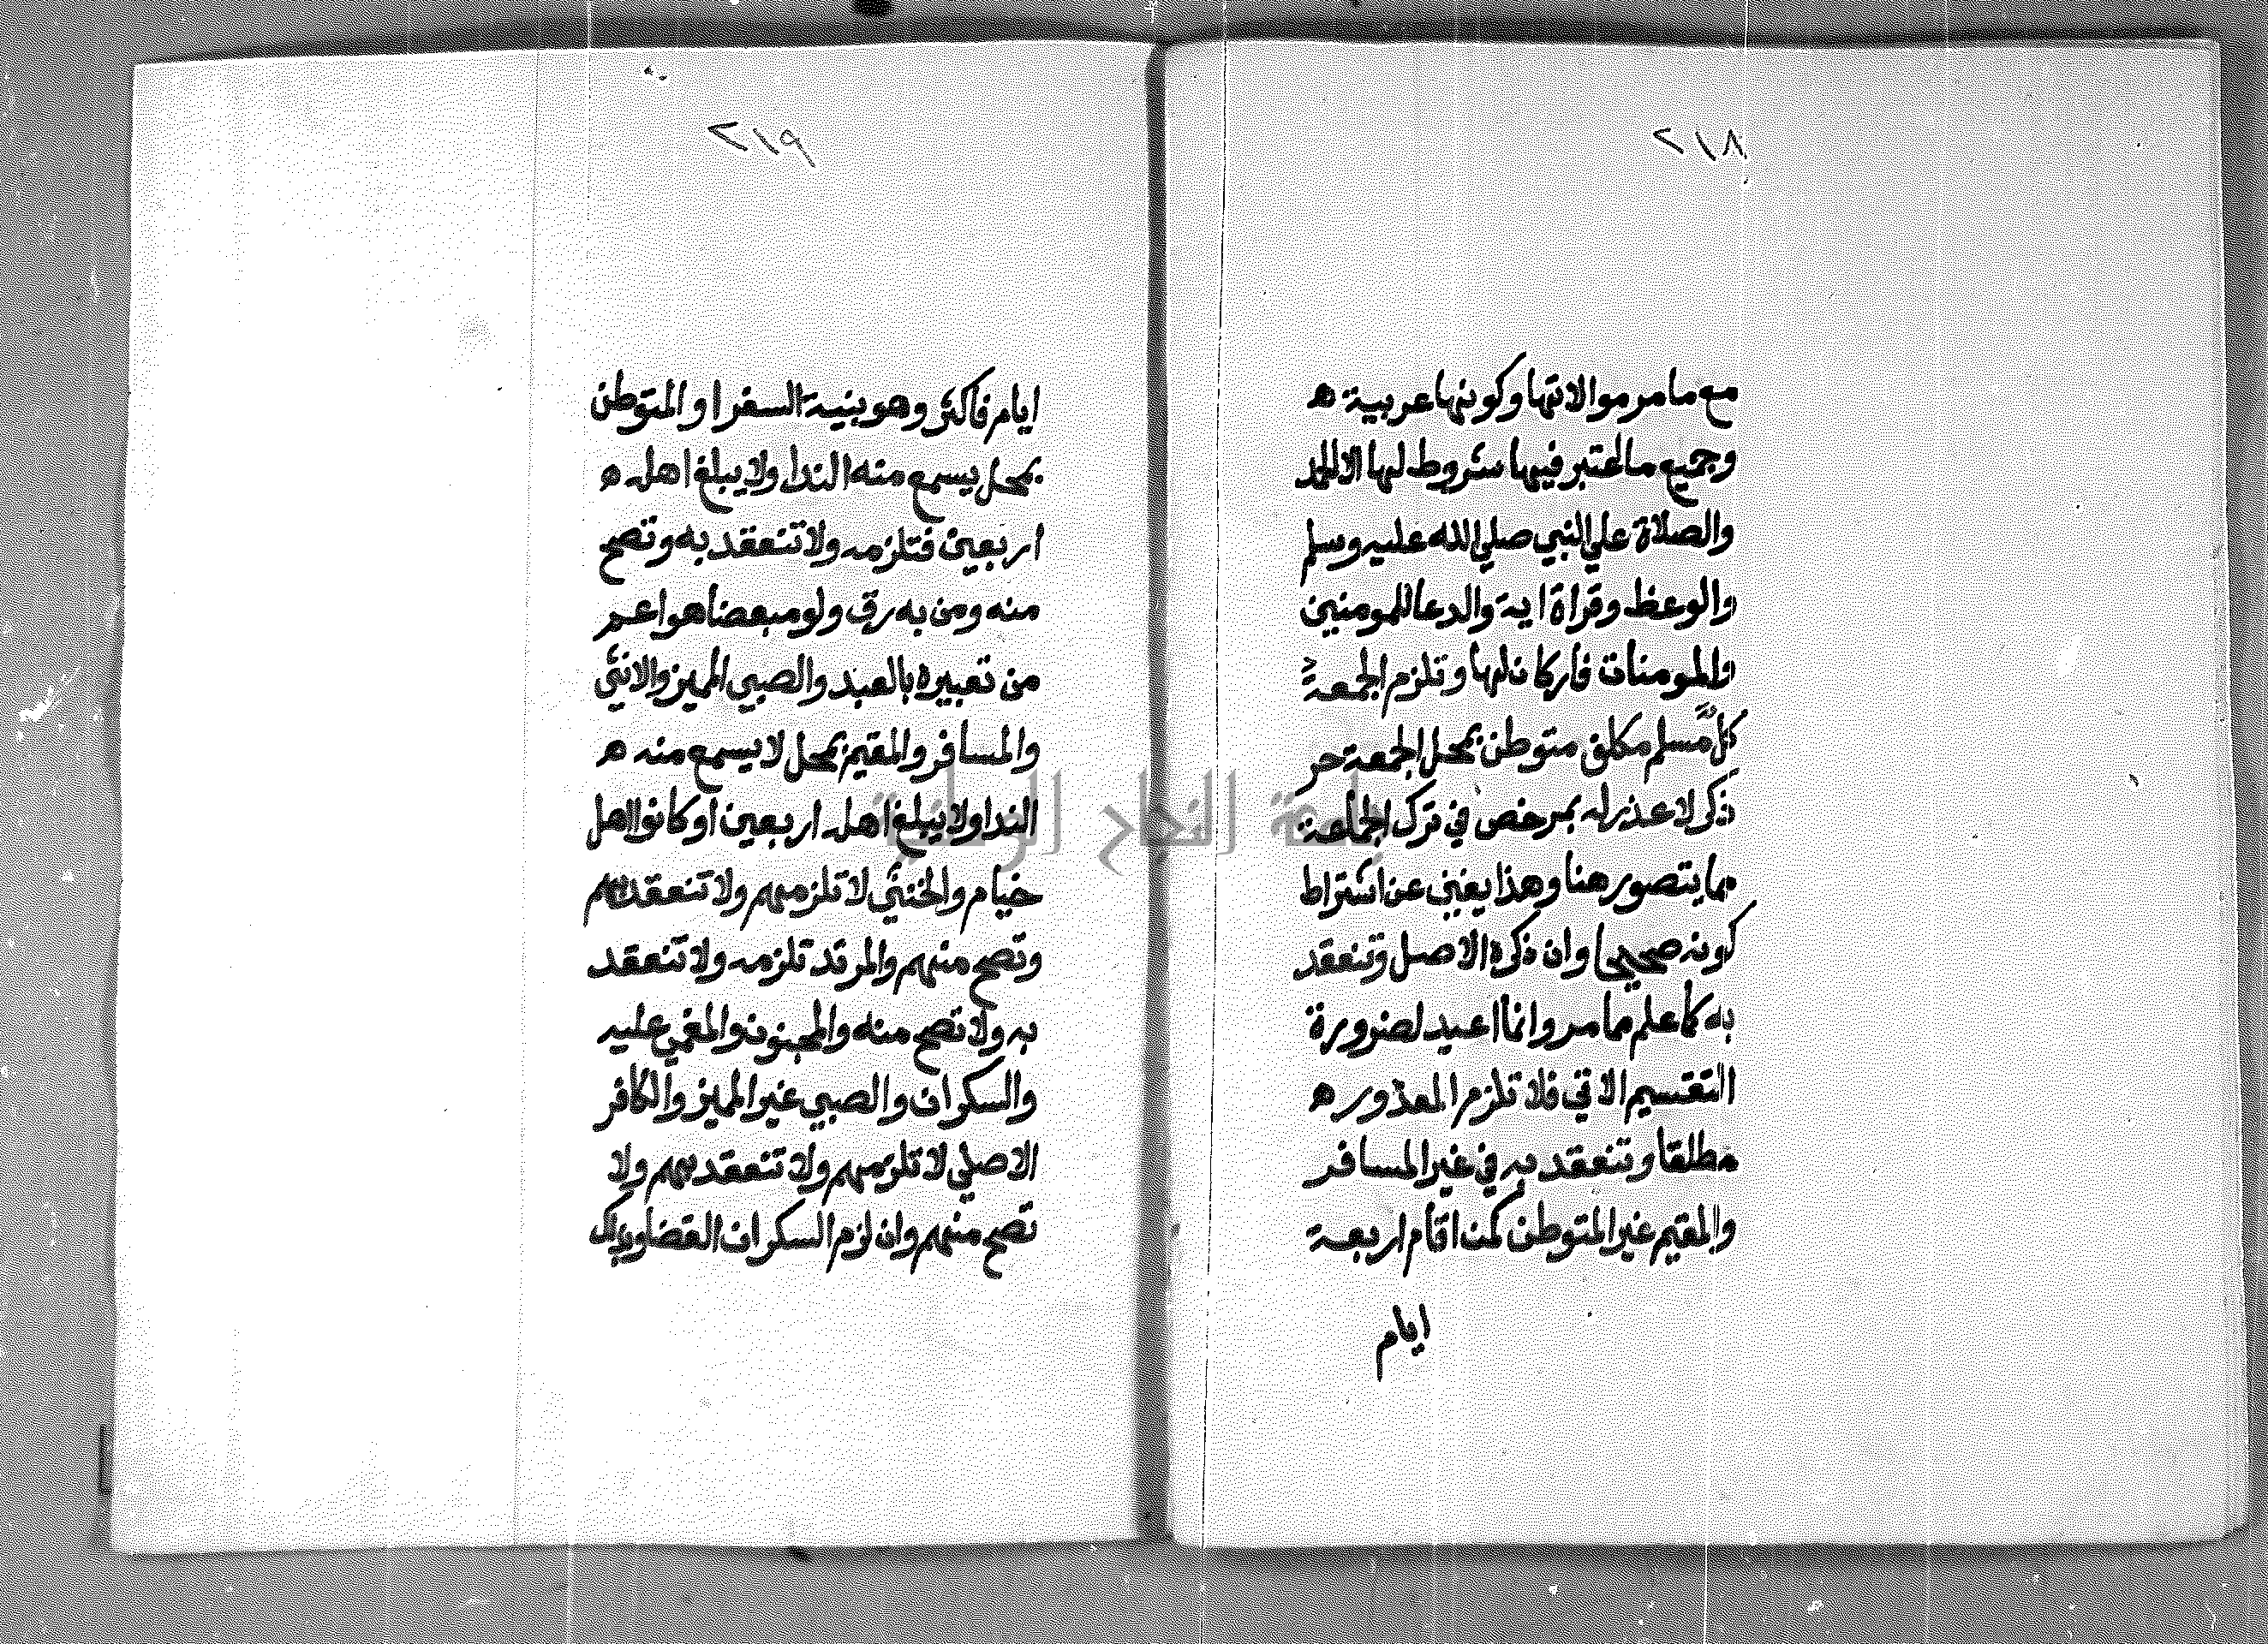 ٢١٨
مع ما مر موالاتها وكونها عربية ه
وجميع ما اعتبر فيها شروط لها الا الحمد
والصلاة علي النبي صلي الله عليه وسلم
والوعظ وقراة اية والدعا للمومنين
والمومنات فاركان لها وتلزم الجمعة
كل مسلم مكلف متوطن بمحل الجمعة حر
ذكر لا عذر له بمرخص في ترك الجماعة
مما يتصور هنا وهذا يغني عن اشتراط
كونه صحيحا وان ذكره الاصل وتنعقد
به كما علم مما مر وانما اعيد لضرورة
التقسيم الاتي فلا تلزم المعذور ه
مطلقا وتنعقد به في غير المسافر
والمقيم غير المتوطن كمن اقام اربعة
ايام
٢١٩
ايام فاكثر وهو بنية السفر او المتوطن
بمحل يسمع منه الندا ولا يبلغ اهله ه
اربعين فتلزمه ولا تنعقد به وتصح
منه ومن به رق ولو مبعضا هو اعم
من تعبيره بالعبد والصبي المميز والانثي
والمسافر والمقيم بمحل لا يسمع منه ه
الندا ولا يبلغ اهله اربعين او كانوا اهل
خيام والخنثي لا تلزمهم ولا تنعقد بهم
وتصح منهم والمرتد تلزمه ولا تنعقد
به ولا تصح منه والمجنون والمغمي عليه
والسكران والصبي غير المميز والكافر
الاصلي لا تلزمهم ولا تنعقد بهم ولا
تصح منهم وان لزم السكران القضا
جامعة النجاح الوطنية